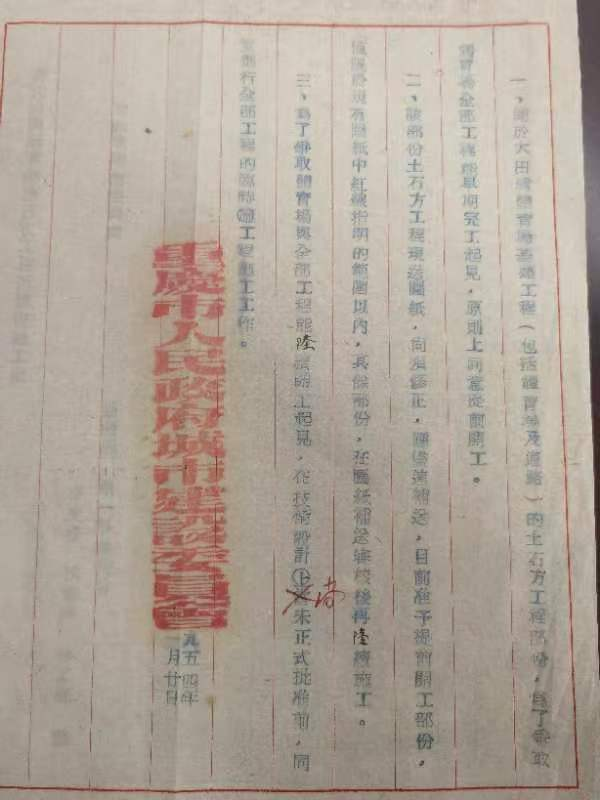 一、關於大田灣體育場基礎工程(包括體育場及道路)的土石方工程部份,爲了爭取
體育場全部工程能早期完工起見,原則上同意提前開工。
二、該部份土石方工程現送圖紙,尚須修正,應儘速補送,目前准予提前開工部份,
僅限於現有圖紙中紅綫指明的範圍以內,其餘部份,在圖紙補送審核後再陸續施工。
三、爲了爭取體育場與全部工程能陸續施工起見,在技術設計上尚未正式批准前,同
意進行全部工程的臨時工程施工工作。
重慶市人民政府城市建設委員會
一九五四年
一月廿日